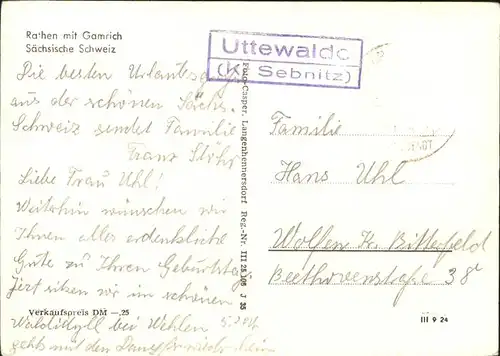 Rathen mit Gamrich
Sächsische Schweiz
Uttewalde
(Kr. Sebnitz)
Die besten Urlaubsgrüße
aus der schönen Sächs.
Schweiz sendet Familie
Franz Stöhr
Liebe Frau Uhl!
Weiterhin wünschen wir
Ihnen alles erdenkliche
Gute zu Ihren Geburtstag.
Jetzt sitzen wir im schönen
Waldidyll bei Wehlen
gehts mit den Dampfer wieder heim
Verkaufspreis DM —,25
Foto-Casper, Langenhennersdorf Reg.-Nr. III 28 106 J 35
Familie
Hans Uhl
Wolfen Kr. Bitterfeld
Beethovenstraße 38
III 9 24